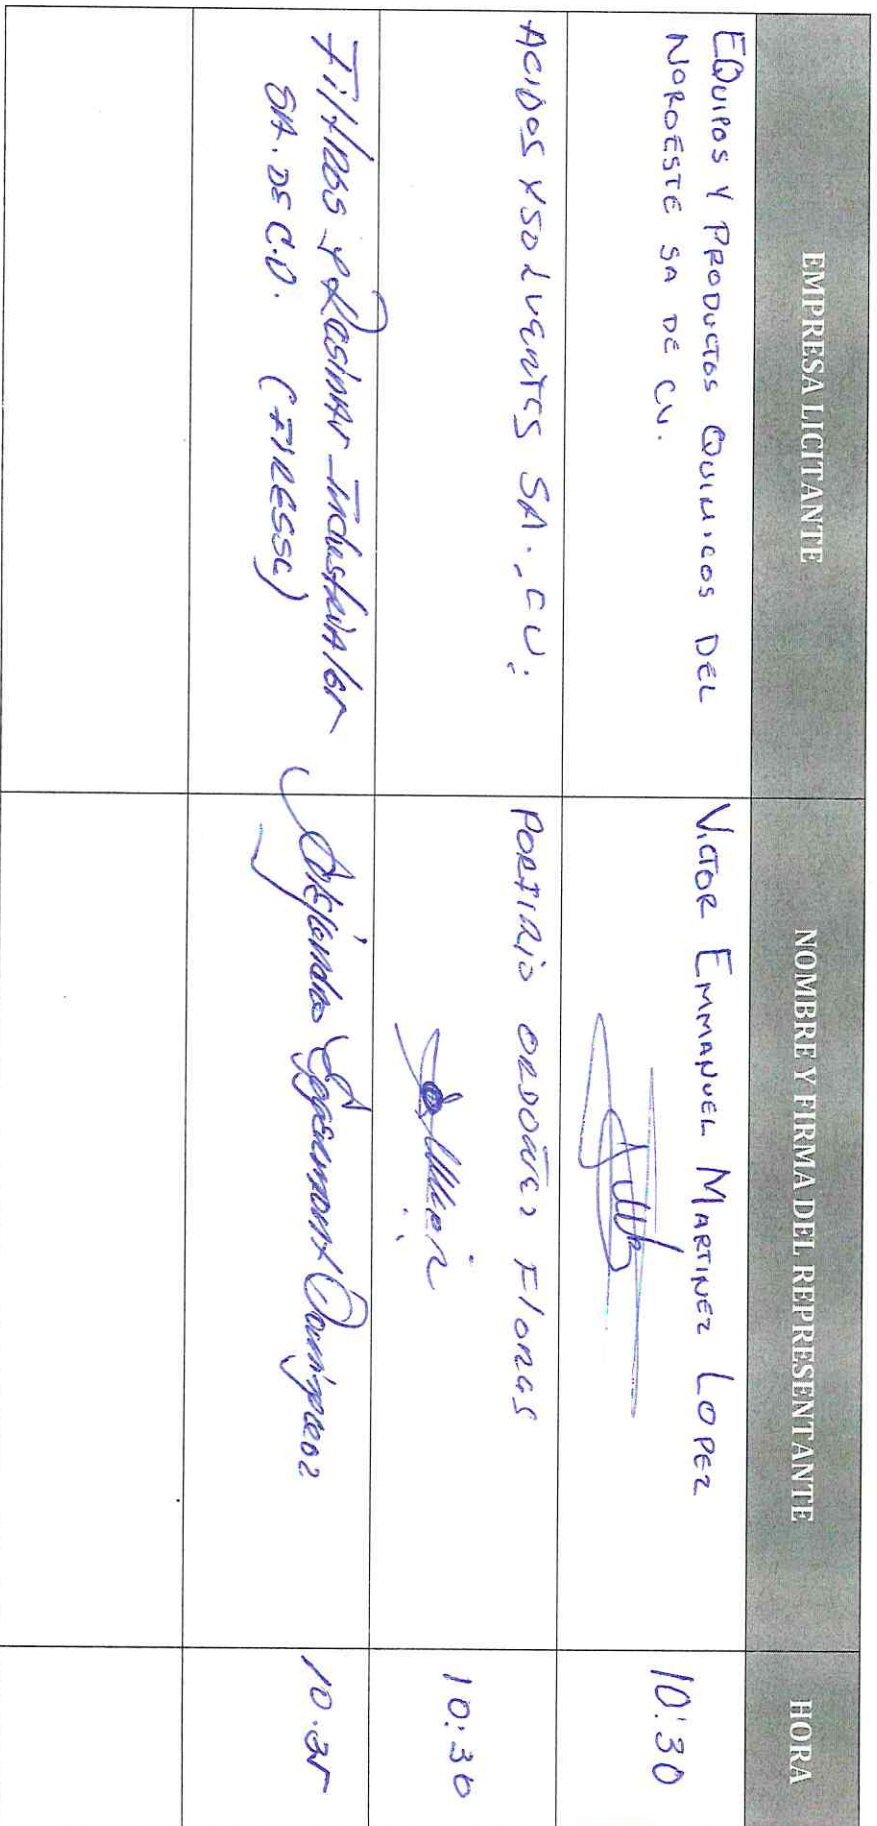 EMPRESA LICITANTE
NOMBRE Y FIRMA DEL REPRESENTANTE
HORA
EQUIPOS Y PRODUCTOS QUIMICOS DEL
NOROESTE SA DE CV.
VICTOR EMMANUEL MARTINEZ LOPEZ
10:30
ACIDOS Y SOLVENTES SA.
CV.
PORFIRIO ORDOÑEZ FLORES
10:30
Filtros y Resinas Industriales
SA. DE C.V. (FIRESSC)
Alejandro
Dominguez
10:35